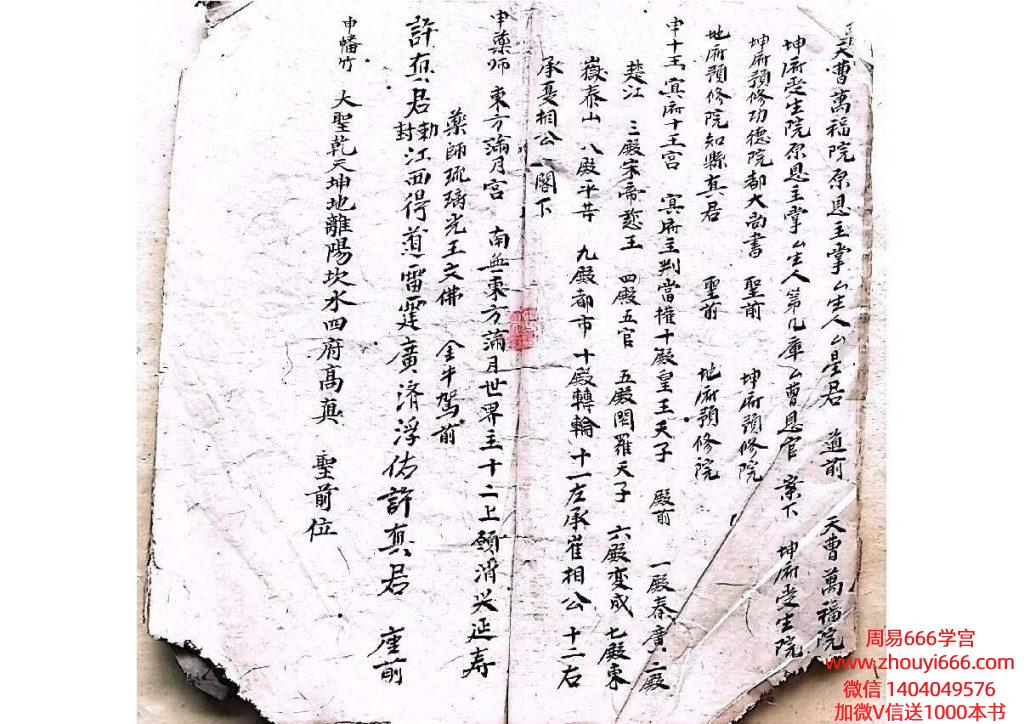 天曹萬福院原恩主掌厶生人厶星君 道前 天曹萬福院
坤府受生院原恩主掌厶生人第几庫厶曹恩官 案下 坤府受生院
坤府預修功德院都大尚書 聖前 坤府預修院
地府預修院知縣真君 聖前 地府預修院
申十王 冥府十王宫 冥府主判當權十殿皇王天子 殿前 一殿秦廣 二殿
楚江 三殿宋帝愆王 四殿五官 五殿閻羅天子 六殿变成 七殿東
嶽泰山 八殿平等 九殿都市 十殿轉輪 十一左承崔相公 十二右
承夏相公 閣下
申藥师 東方滿月宫 南無東方滿月世界主十二上願消災延寿
藥師琉璃光王文佛 金牛駕前
許真君勅封江西得道雷霆廣济浮佑許真君 座前
申幡竹 大聖乾天坤地離陽坎水四府高真 聖前位
周易666学宫
www.zhouyi666.com
微信 1404049576
加微V信送1000本书